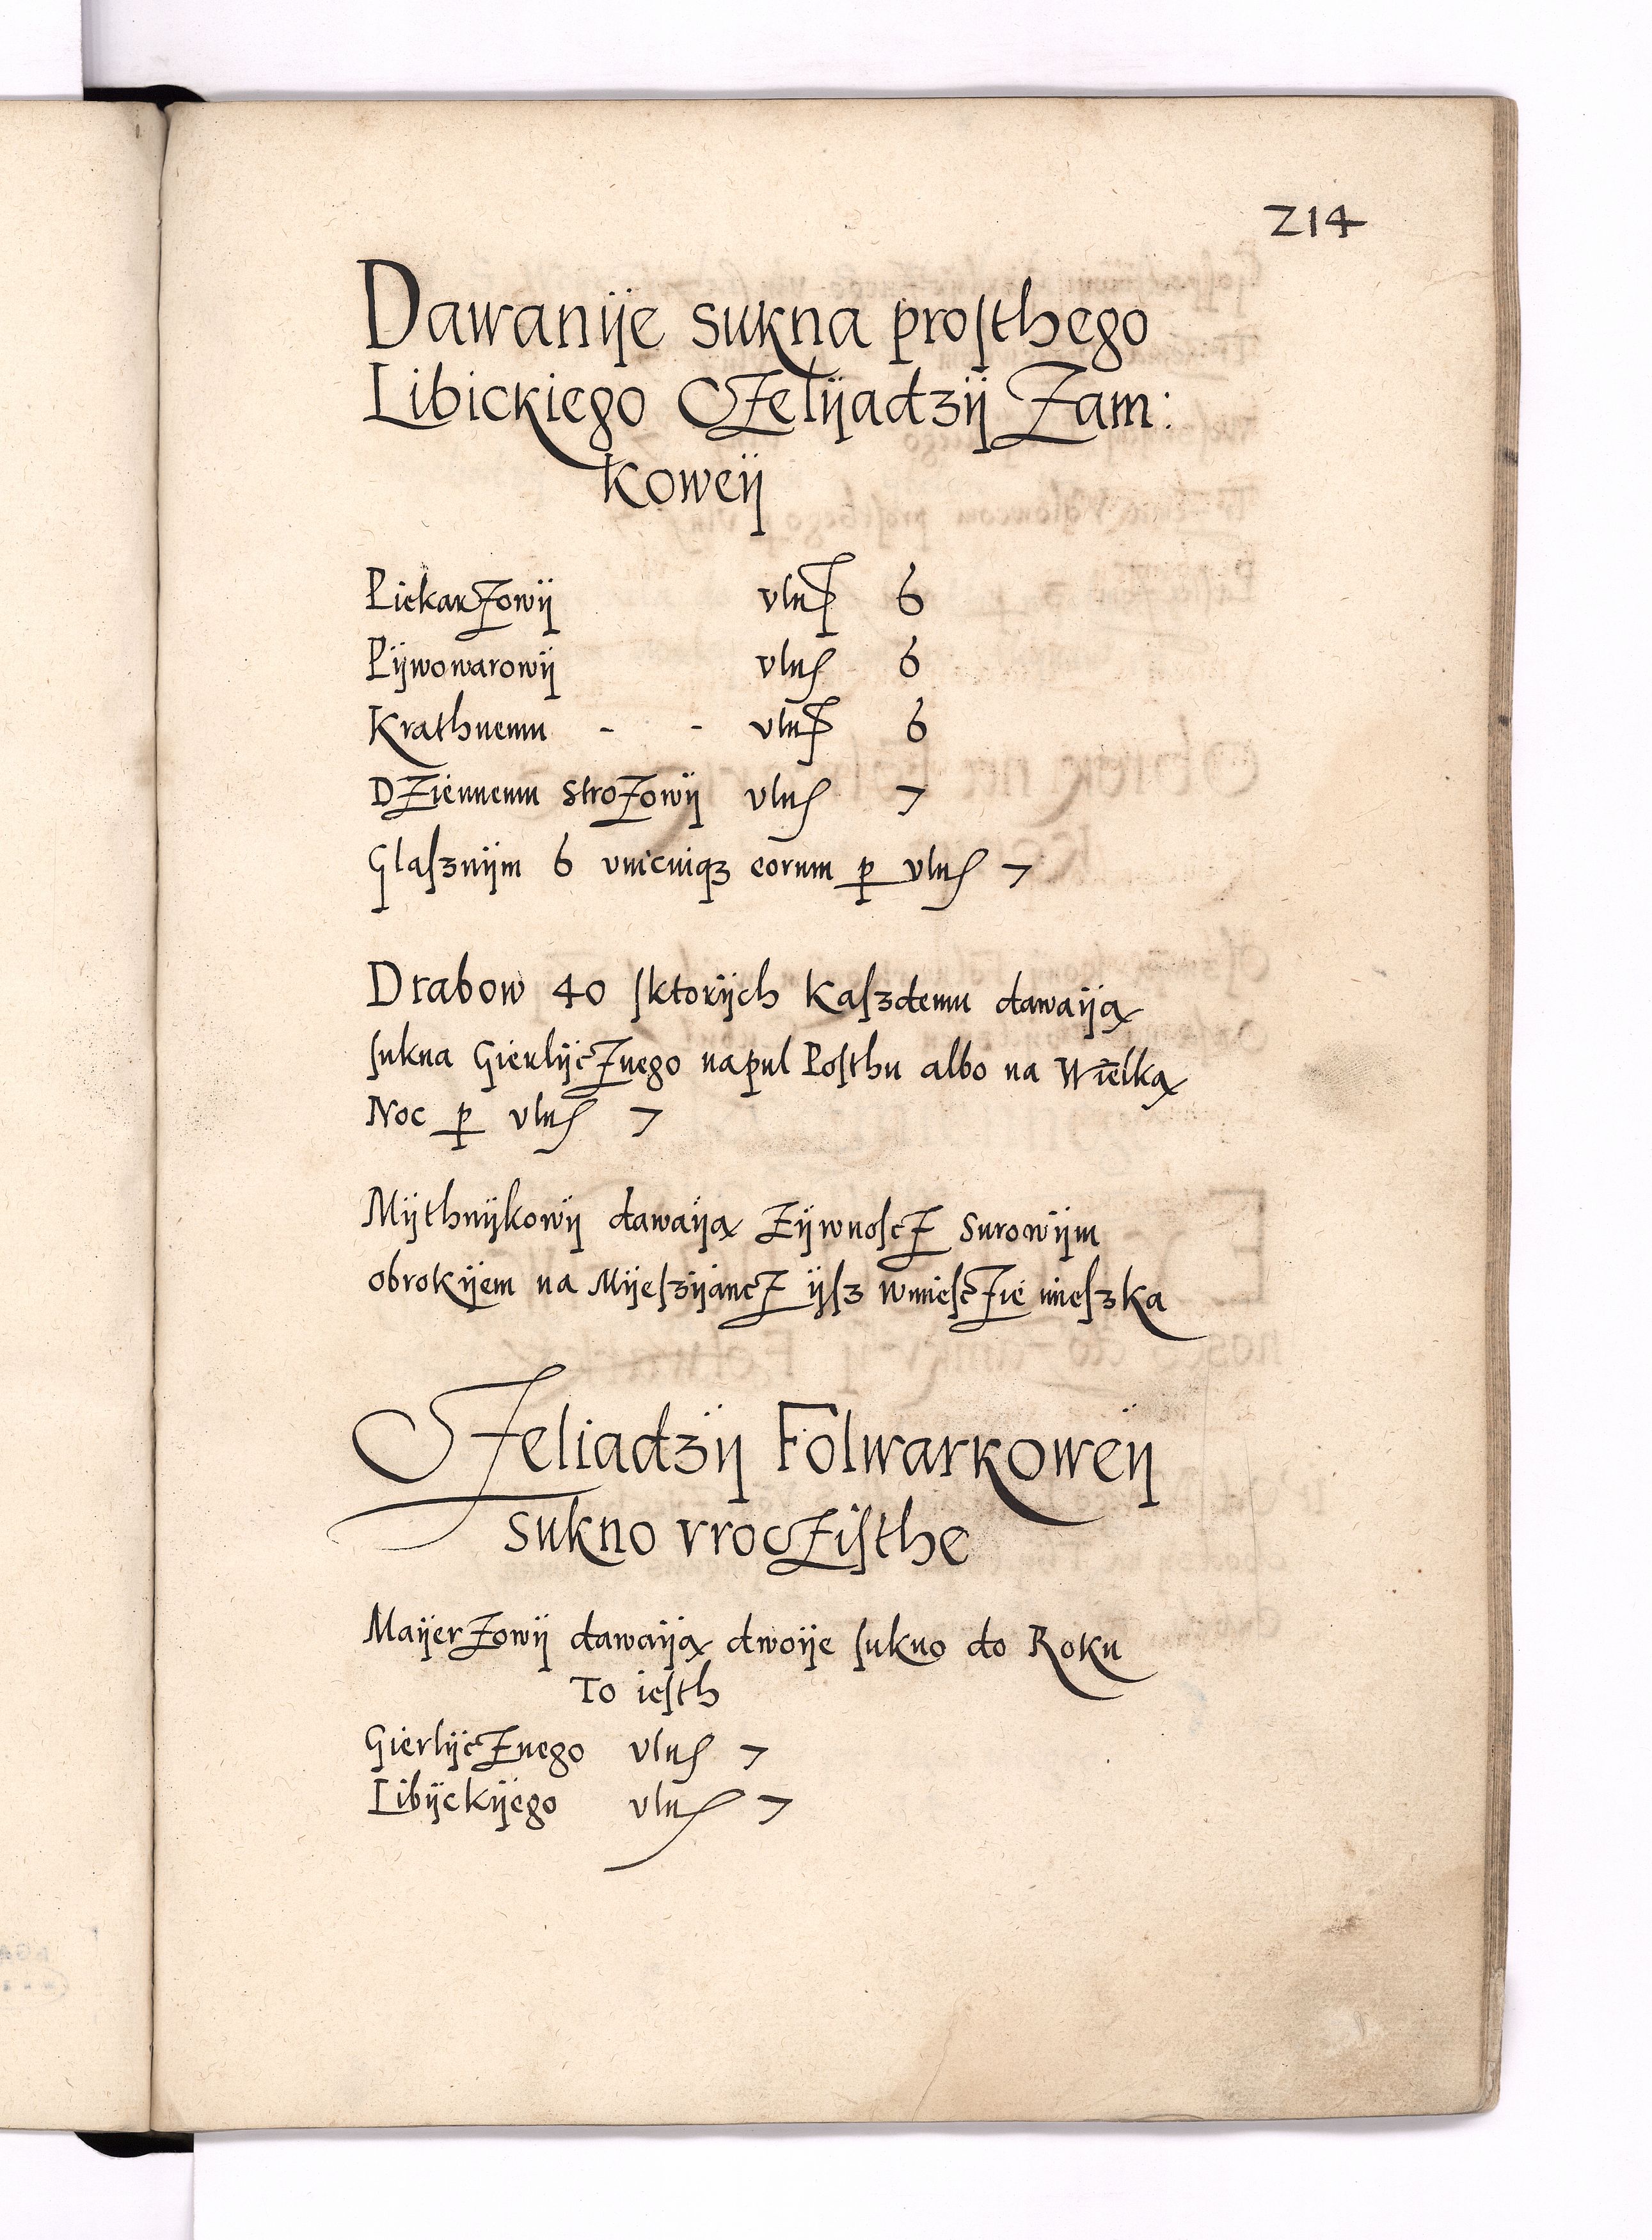 214
Dawanije sukna prosthego
Libickiego Czelijadzij Zam:
koweij
Piekarzowij vlnas 6
Pijwowarowij vlnas 6
Krathnemu - - vlnas 6
Dziennemu strozowij vlnas 7
Glasznijm 6 vnicuiqz eorum p vlnas 7
Drabow 40 sktorijch kaszdemu dawaija
sukna Gierlijcznego napul Posthu albo na Wielką
Noc p vlnas 7
Mijthnijkowij dawaiją zijwnoscz surowijm
obrokijem na Mijeszijancz ijsz wmiesczie mieszka
Czeliadzij Folwarkoweij
sukno vroczisthe
Maijerzowij dawaiją dwoije sukno do Roku
To iesth
Gierlijcznego vlnas 7
Libijckijego vlnas 7